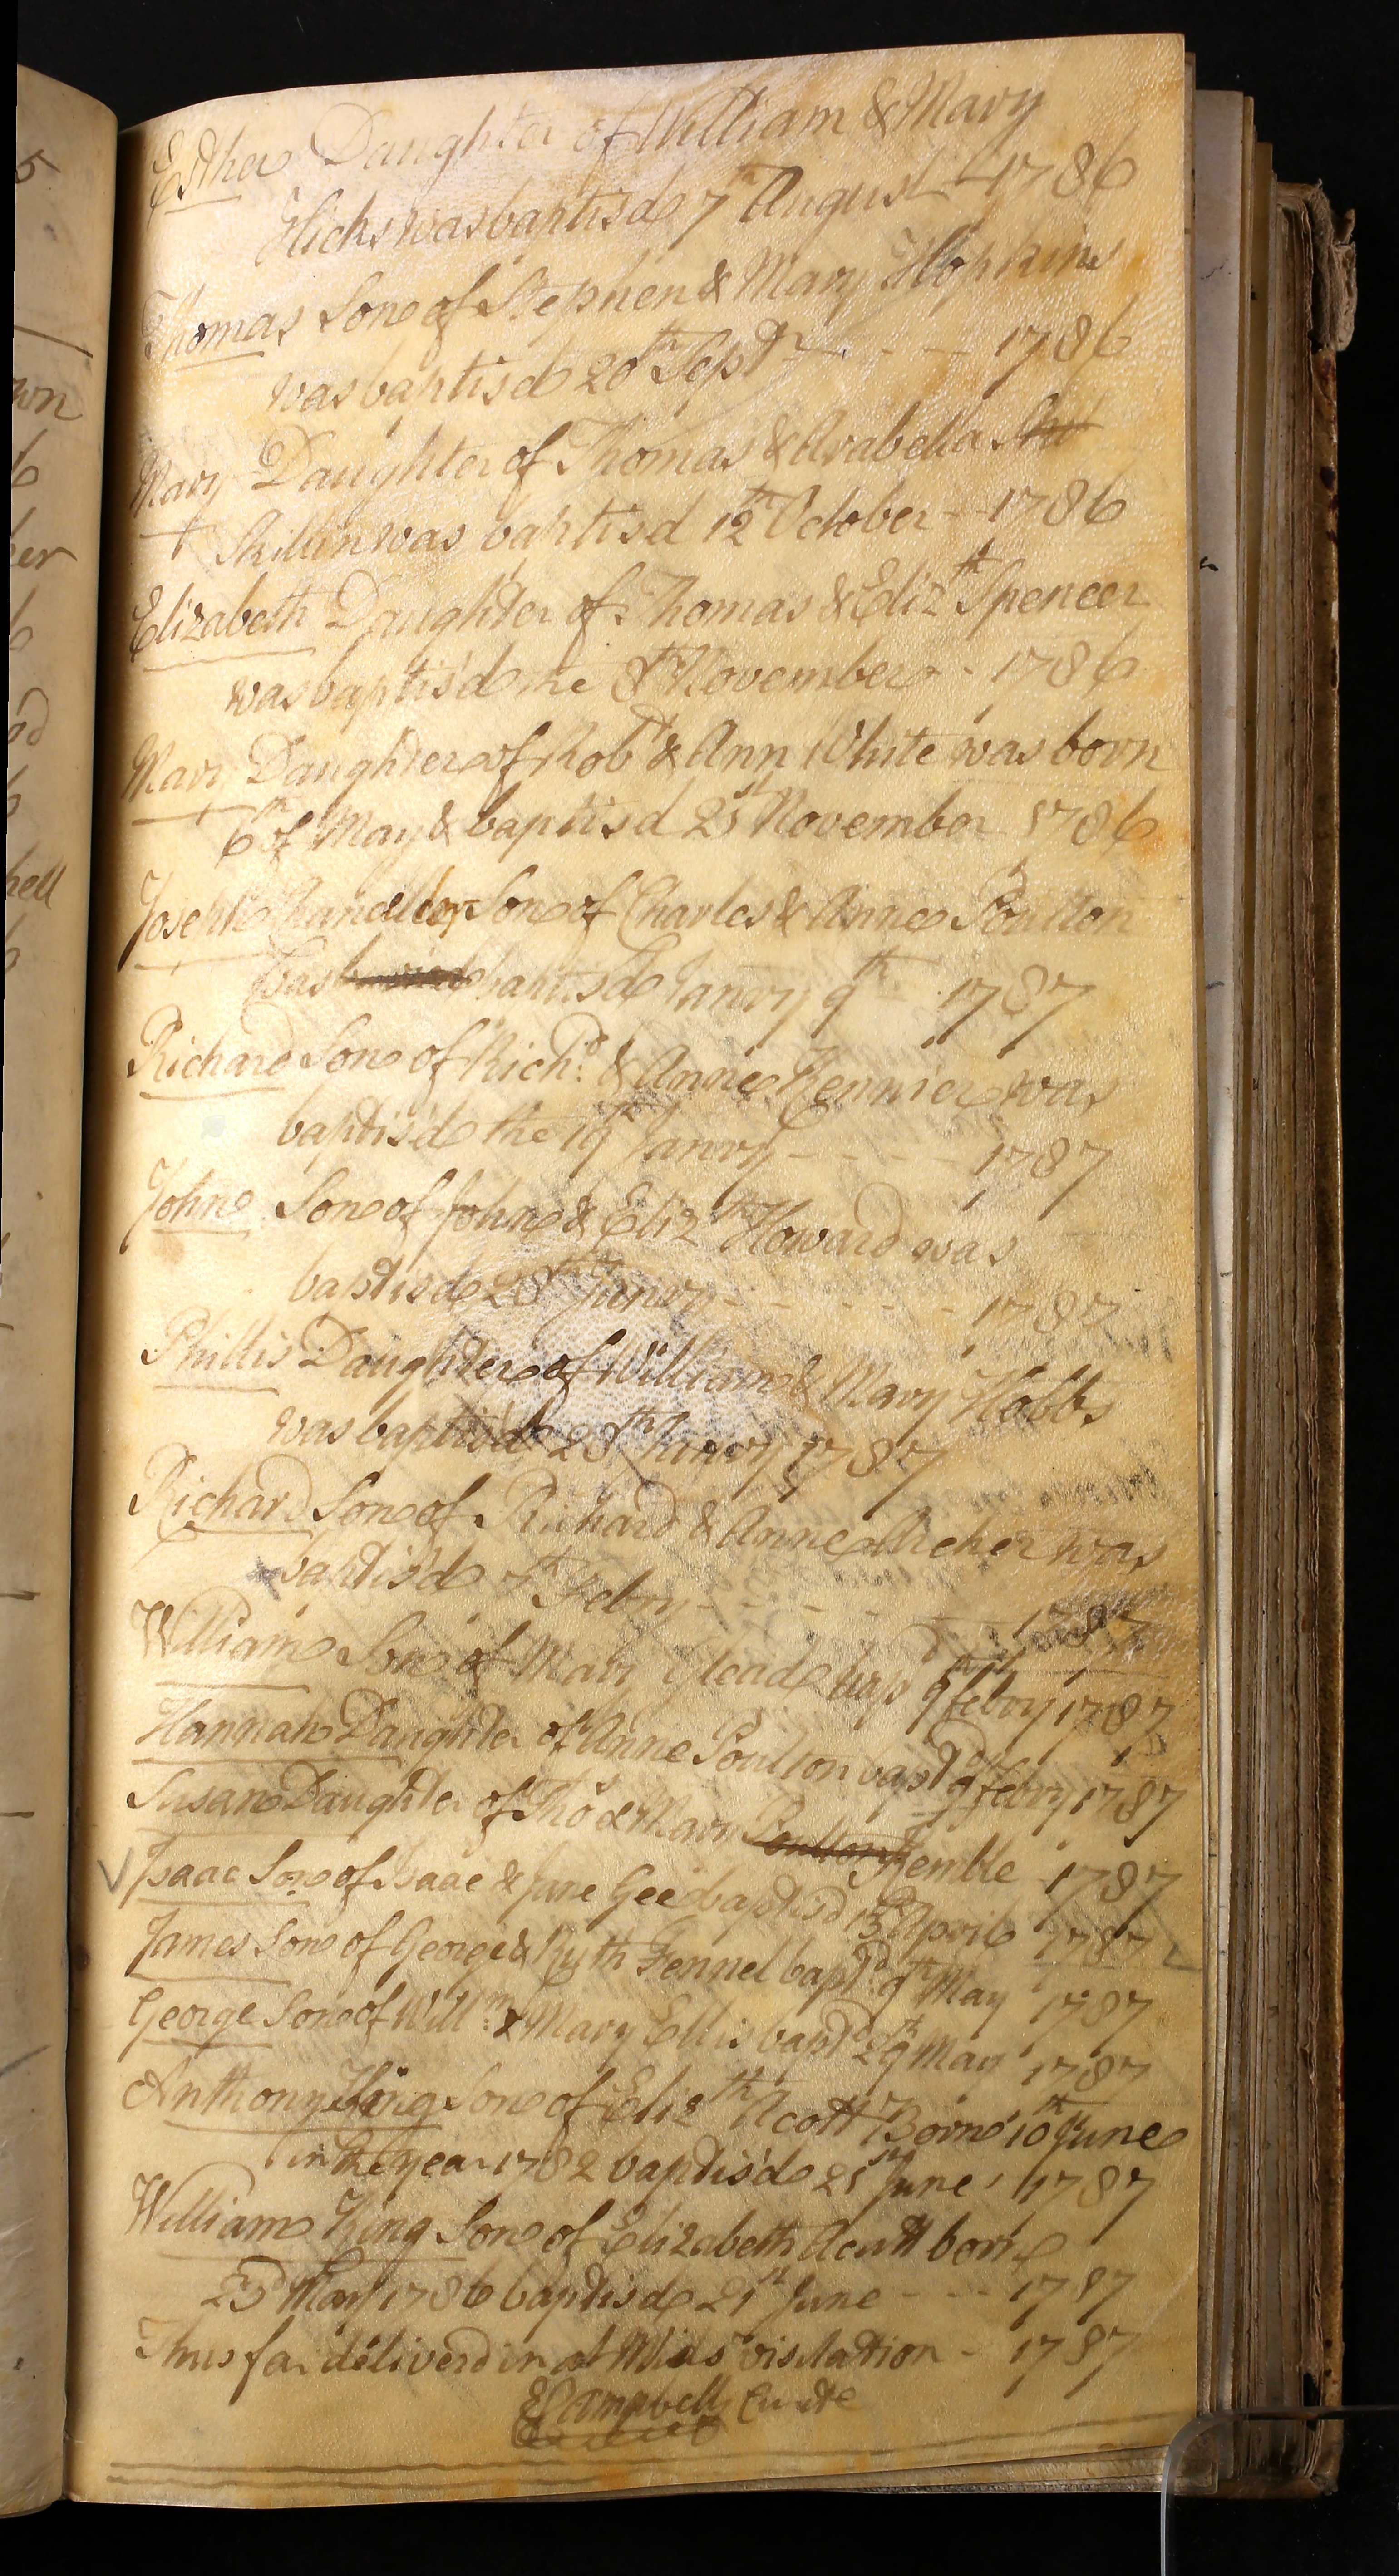 Esther Daughter of William & Mary
Hicks was baptisd 7th August 1786
Thomas Son of Stephen & Mary Hopkins
was baptisd 20th Septr - - - 1786
Mary Daughter of Thomas & Arabella
Skillin was baptisd 12th October - - 1786
Elizabeth Daughter of Thomas & Elizth Spencer
was baptis'd the 8th November - - 1786
Mary Daughter of Robt & Ann White was born
6th of May & baptisd 21st November 1786
Joseph Chandler Son of Charles & Anne Poulton
was baptisd Janry 9th 1787
Richard Son of Richd: & Anne Kennier was
baptis'd the 19th Janry - - - - - 1787
John Son of John & Elizth Howard was
baptisd 28th Janry - - - - - - 1787
Phillis Daughter of William & Mary Hobbs
was baptis'd 28th Janry 1787
Richard Son of Richard & Anne Archer was
baptis'd 7th Febry - - - - - 1787
William Son of Mary Glead bapd 9th febry 1787
Hannah Daughter of Anne Poulton bapd 9th febry 1787
Susan Daughter of Thos & Mary Poulton Kemble 1787
Isaac Son of Isaac & Jane Gee baptisd 15th April 1787
James Son of George & Ruth Fennel bapt'd 9th May 1787
George Son of Willm: & Mary Ellis bapt'd 29th May 1787
Anthony King Son of Elizth Acott Born 10th June
in the year 1782 baptis'd 21st June 1787
William King Son of Elizabeth Acott born
23d May 1786 baptisd 21st June - - - 1787
Thus far deliverd in at visitation - 1787
E Campbell Curate